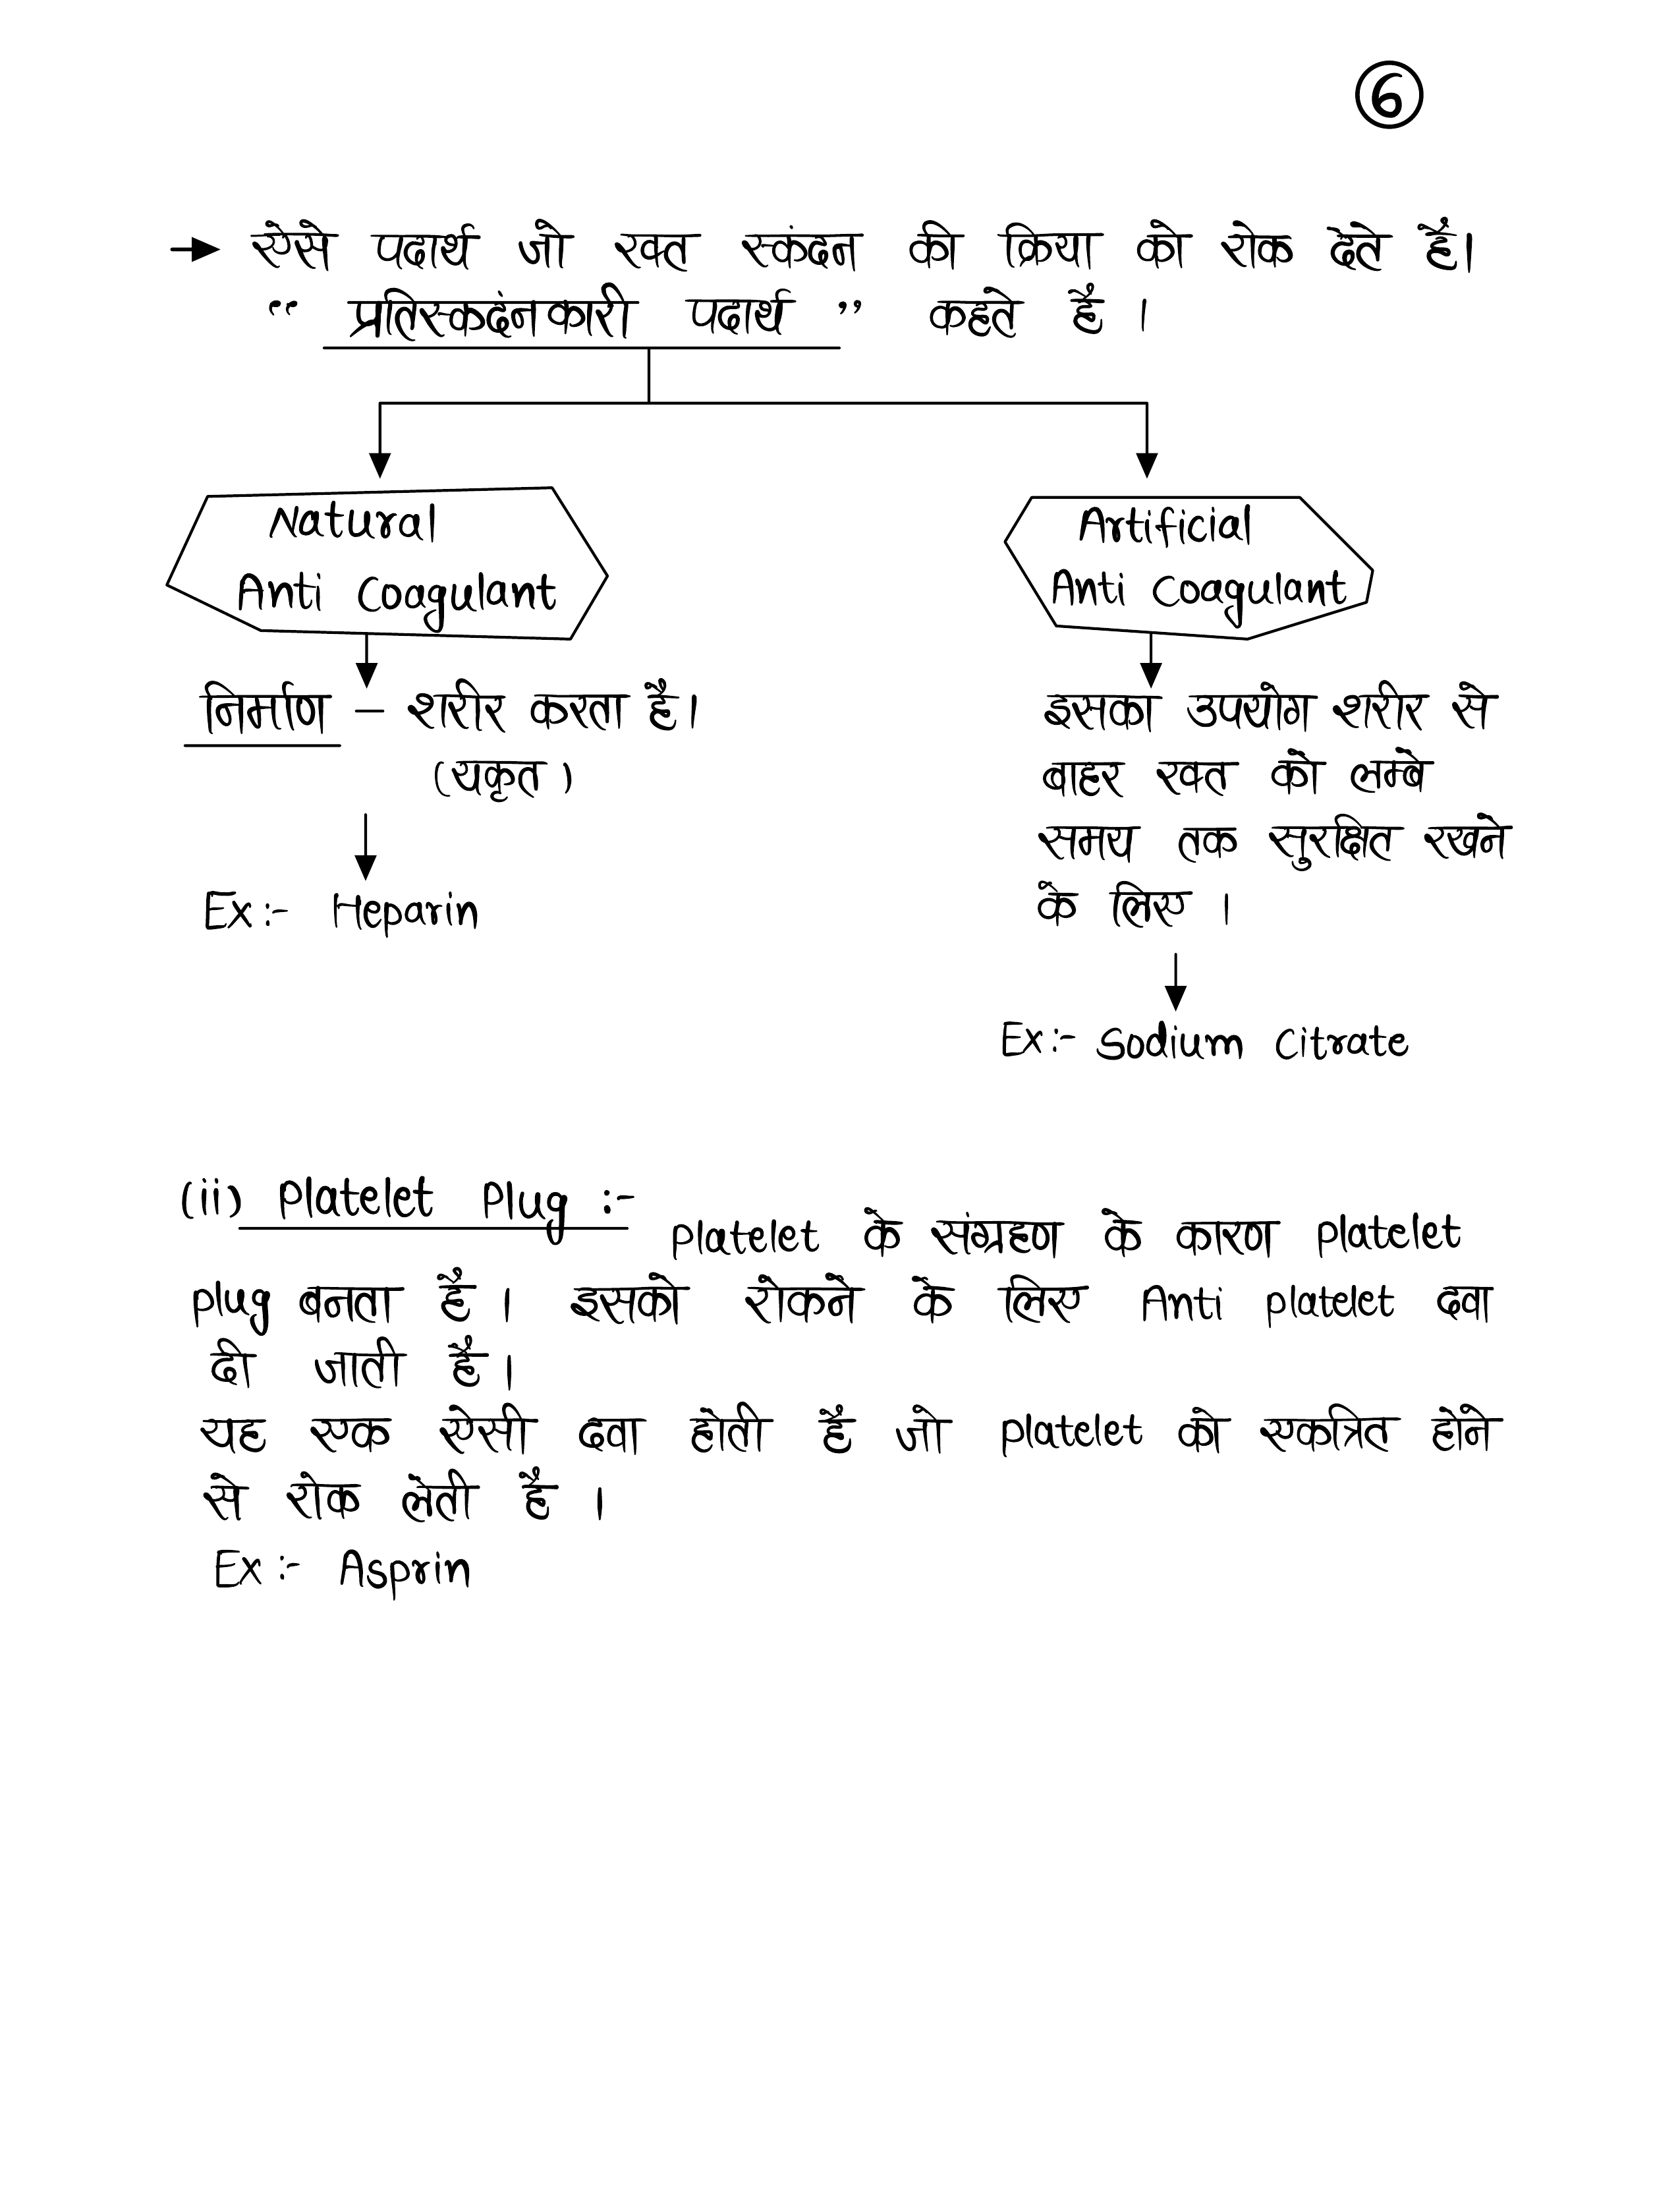 6
→ ऐसे पदार्थ जो रक्त स्कंदन की क्रिया को रोक देते हैं।
“ प्रतिस्कदंनकारी पदार्थ ” कहते हैं ।
Natural
Anti Coagulant
निर्माण – शरीर करता है।
(यकृत)
Ex:- Heparin
Artificial
Anti Coagulant
इसका उपयोग शरीर से
बाहर रक्त को लम्बे
समय तक सुरक्षित रखने
के लिए ।
Ex:- Sodium Citrate
(ii) Platelet Plug :-
Platelet के संग्रहण के कारण Platelet
Plug बनता है । इसको रोकने के लिए Anti platelet दवा
दी जाती है ।
यह एक ऐसी दवा होती है जो Platelet को एकत्रित होने
से रोक लेती है ।
Ex:- Asprin